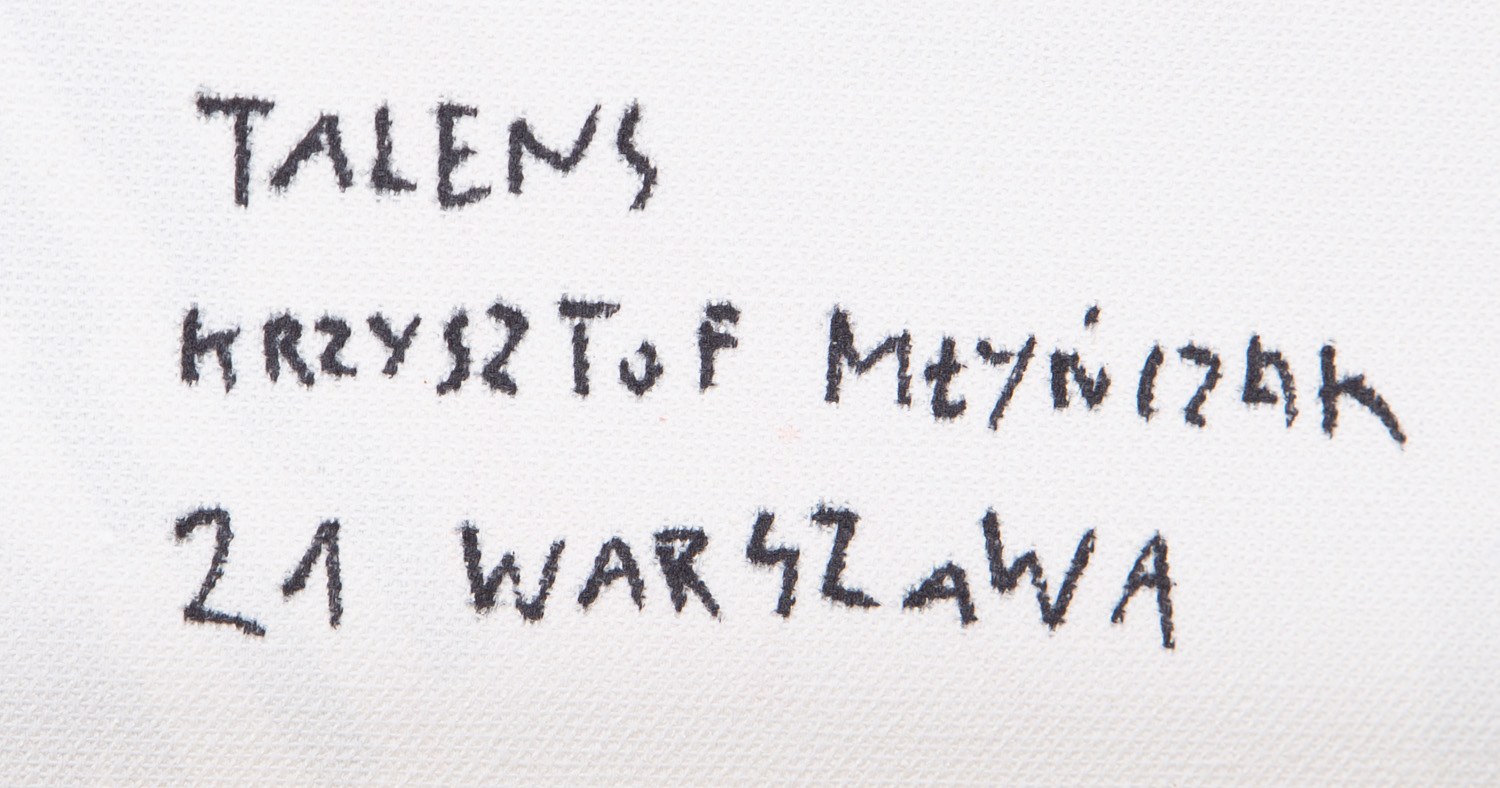 TALENS
KRZYSZToF MŁYŃCZAK
21 WARSZAWA